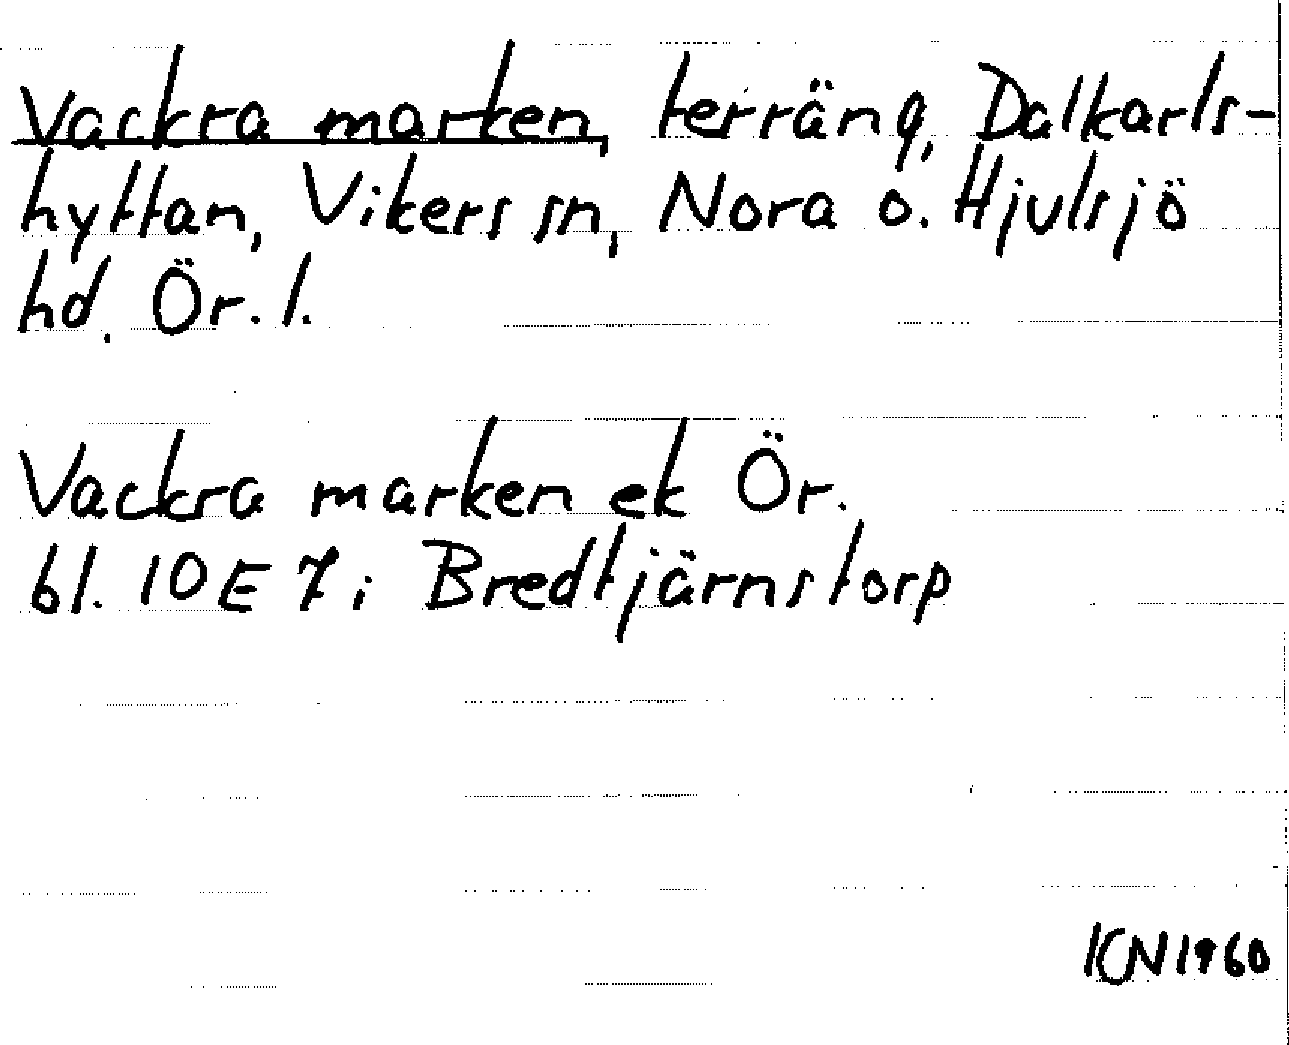 Vackra marken, terräng, Dalkarls-
hyttan, Vikers sn, Nora o. Hjulsjö
hd. Ör. l.
Vackra marken ek Ör.
bl. 10E7i Bredtjärnstorp
KN1960